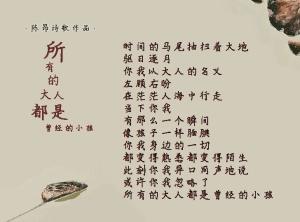 ·陈昂诗歌作品·
所
有
的
大人
都是
曾经的小孩
时间的马尾抽挡着大地
驱日逐月
你我以大人的名义
左顾右盼
在茫茫人海中行走
当下你我
有那么一个瞬间
像孩子一样腼腆
你我身边的一切
都变得熟悉都变得陌生
此刻你我异口同声地说
或许你我忽略了
所有的大人都是曾经的小孩